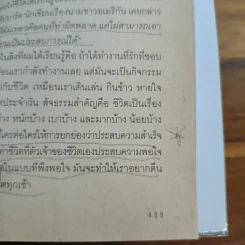 บาร์ต นักเขียนเรื่องนามชาวอเมริกัน เคยกล่าว
คนที่ทำผิดพลาด แต่ไม่สามารถเอา
เป็นประสบการณ์ได้"
ในสิ่งที่ผมได้เรียนรู้คือ ถ้าได้ทำงานที่รักที่ชอบ
ือนเรากำลังทำงานเลย แต่มันจะเป็นกิจกรรม
กับชีวิต เหมือนเราเดินเล่น กินข้าว หายใจ
ประจำวัน สัจธรรมสำคัญคือ ชีวิตเป็นเรื่อง
ง หนักบ้าง เบาบ้าง และมากบ้าง น้อยบ้าง
ใครต่อใครให้การยกย่องว่าประสบความสำเร็จ
ชีวิตที่ตัวเจ้าของชีวิตเองประสบความพอใจ
ในแบบที่พึงพอใจ มันจะทำให้เราอยากตื่น
ทุกเช้า